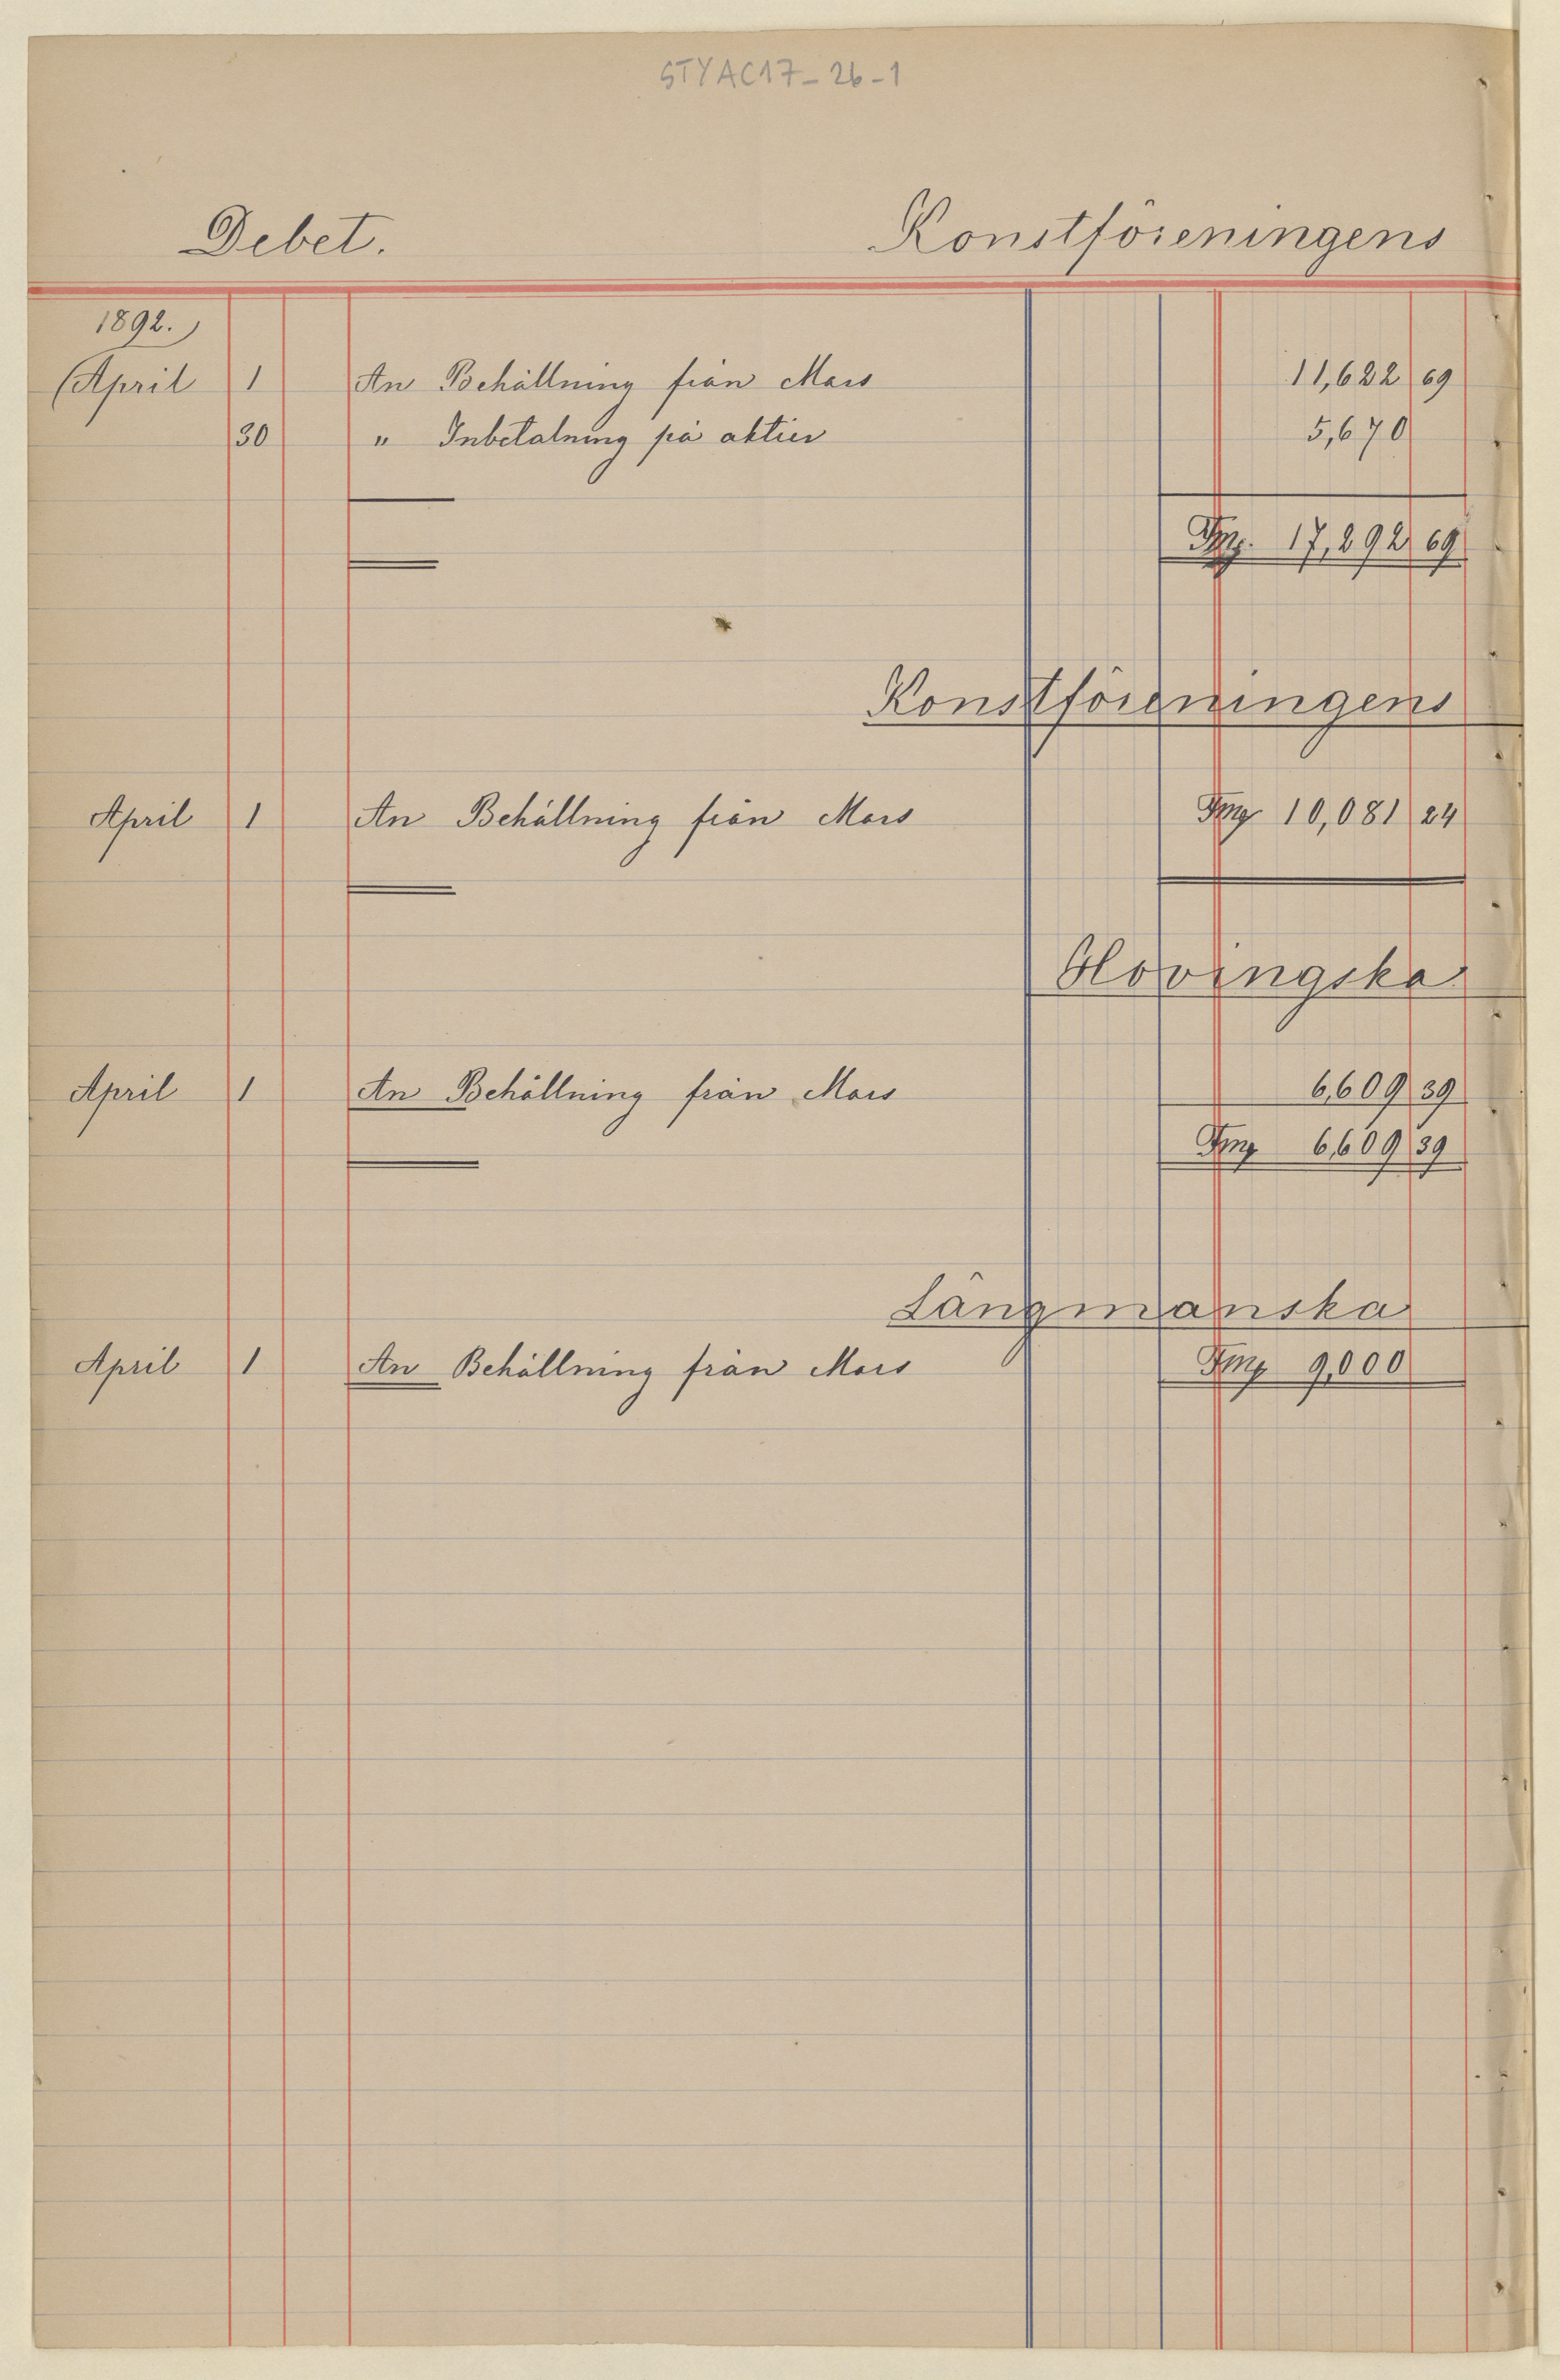 STYAC17-26-1
Debet. Konstföreningens
1892.
April 1 An Behållning från Mars 11,622 69
30 " Inbetalning på aktier 5,670
Fmg. 17,292 69
Konstföreningens
April 1 An Behållning från Mars Fmg 10,081 24
Hovingska
April 1 An Behållning från Mars 6,609 39
Fmg 6,609 39
Långmanska
April 1 An Behållning från Mars Fmg 9,000